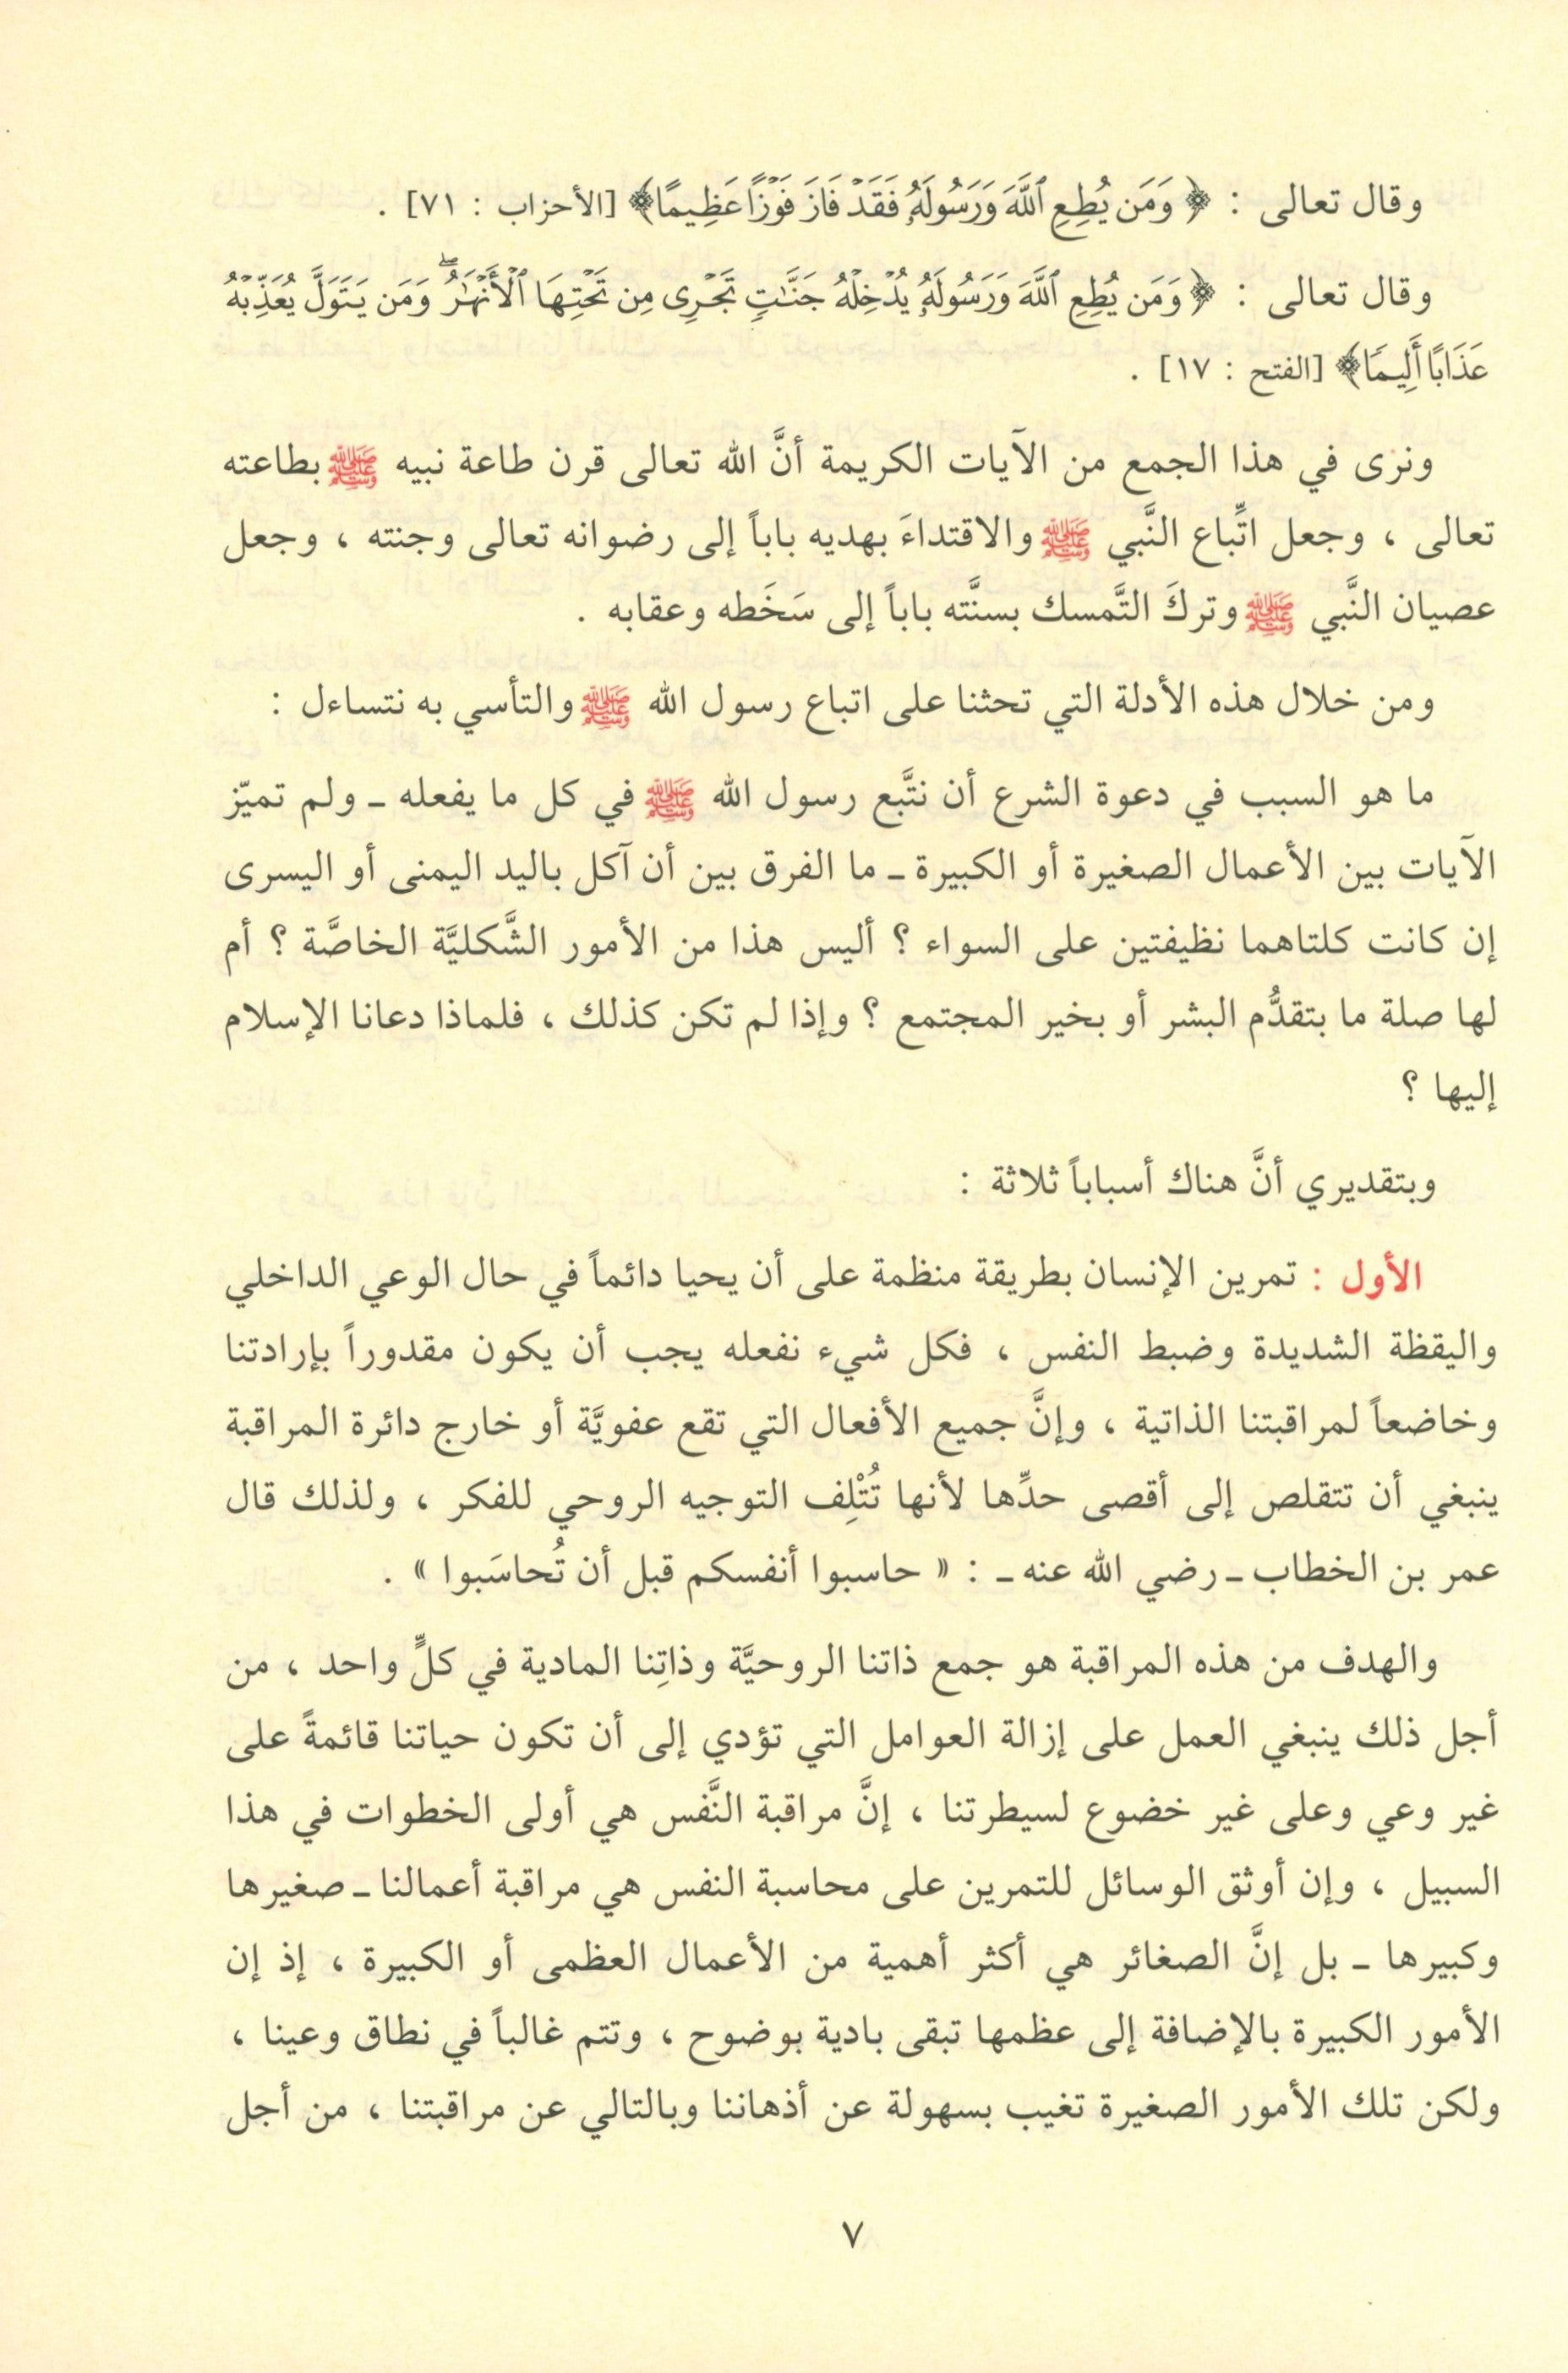 وقال تعالى : ﴿ وَمَن يُطِعِ ٱللَّهَ وَرَسُولَهُۥ فَقَدۡ فَازَ فَوۡزًا عَظِيمًا﴾ [الأحزاب : ٧١] .
وقال تعالى : ﴿ وَمَن يُطِعِ ٱللَّهَ وَرَسُولَهُۥ يُدۡخِلۡهُ جَنَّٰتٖ تَجۡرِي مِن تَحۡتِهَا ٱلۡأَنۡهَٰرُۖ وَمَن يَتَوَلَّ يُعَذِّبۡهُ
عَذَابًا أَلِيمٗا﴾ [الفتح : ١٧] .
ونرى في هذا الجمع من الآيات الكريمة أنَّ الله تعالى قرن طاعة نبيه ﷺ بطاعته
تعالى ، وجعل اتِّباع النَّبي ﷺ والاقتداءَ بهديه باباً إلى رضوانه تعالى وجنته ، وجعل
عصيان النَّبي ﷺ وتركَ التَّمسك بسنَّته باباً إلى سَخَطه وعقابه .
ومن خلال هذه الأدلة التي تحثنا على اتباع رسول الله ﷺ والتأسي به نتساءل :
ما هو السبب في دعوة الشرع أن نتَّبع رسول الله ﷺ في كل ما يفعله ـ ولم تميّز
الآيات بين الأعمال الصغيرة أو الكبيرة ـ ما الفرق بين أن آكل باليد اليمنى أو اليسرى
إن كانت كلتاهما نظيفتين على السواء ؟ أليس هذا من الأمور الشَّكليَّة الخاصَّة ؟ أم
لها صلة ما بتقدُّم البشر أو بخير المجتمع ؟ وإذا لم تكن كذلك ، فلماذا دعانا الإسلام
إليها ؟
وبتقديري أنَّ هناك أسباباً ثلاثة :
الأول : تمرين الإنسان بطريقة منظمة على أن يحيا دائماً في حال الوعي الداخلي
واليقظة الشديدة وضبط النفس ، فكل شيء نفعله يجب أن يكون مقدوراً بإرادتنا
وخاضعاً لمراقبتنا الذاتية ، وإنَّ جميع الأفعال التي تقع عفويَّة أو خارج دائرة المراقبة
ينبغي أن تتقلص إلى أقصى حدِّها لأنها تُتْلِف التوجيه الروحي للفكر ، ولذلك قال
عمر بن الخطاب ـ رضي الله عنه ـ : « حاسبوا أنفسكم قبل أن تُحاسَبوا » .
والهدف من هذه المراقبة هو جمع ذاتنا الروحيَّة وذاتِنا المادية في كلٍّ واحد ، من
أجل ذلك ينبغي العمل على إزالة العوامل التي تؤدي إلى أن تكون حياتنا قائمةً على
غير وعي وعلى غير خضوع لسيطرتنا ، إنَّ مراقبة النَّفس هي أولى الخطوات في هذا
السبيل ، وإن أوثق الوسائل للتمرين على محاسبة النفس هي مراقبة أعمالنا ـ صغيرها
وكبيرها ـ بل إنَّ الصغائر هي أكثر أهمية من الأعمال العظمى أو الكبيرة ، إذ إن
الأمور الكبيرة بالإضافة إلى عظمها تبقى بادية بوضوح ، وتتم غالباً في نطاق وعينا ،
ولكن تلك الأمور الصغيرة تغيب بسهولة عن أذهاننا وبالتالي عن مراقبتنا ، من أجل
٧